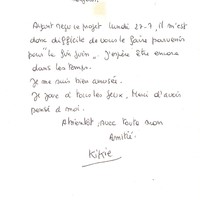 Bonjour,
Ayant reçu ce projet lundi 27.7, il m'est
donc difficile de vous le faire parvenir
pour "le 1er juin". J'espère être encore
dans les temps.
Je me suis bien amusée.
Je joue à tous les jeux, Merci d'avoir
pensé à moi.
A bientôt, avec toute mon
Amitié.
Kikie